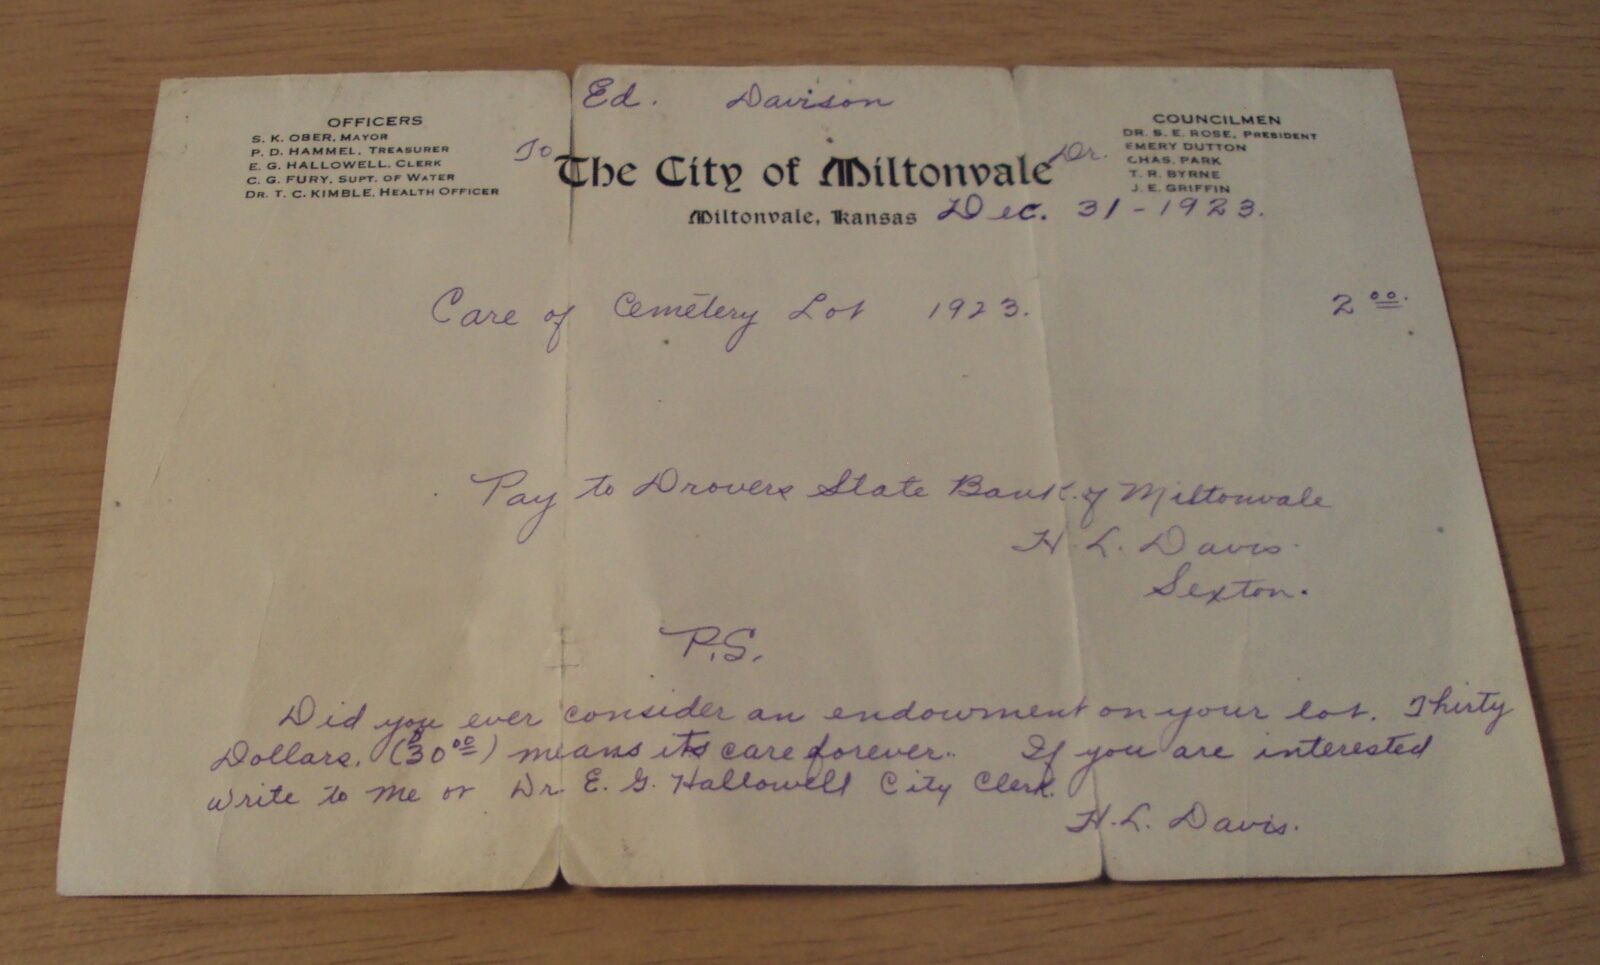 Ed. Davison
OFFICERS
S. K. OBER, MAYOR
P. D. HAMMEL, TREASURER
E. G. HALLOWELL, CLERK
C. G. FURY, SUPT. OF WATER
DR. T. C. KIMBLE, HEALTH OFFICER
To The City of Miltonvale Dr.
Miltonvale, Kansas Dec. 31-1923.
COUNCILMEN
DR. S. E. ROSE, PRESIDENT
EMERY DUTTON
CHAS. PARK
T. R. BYRNE
J. E. GRIFFIN
Care of Cemetery Lot 1923. 2 00.
Pay to Drovers State Bank of Miltonvale
H. L. Davis.
Sexton.
P.S.
Did you ever consider an endowment on your lot. Thirty
Dollars. (30 00) means its care forever. If you are interested
write to me or Dr. E. G. Hallowell City Clerk.
H. L. Davis.